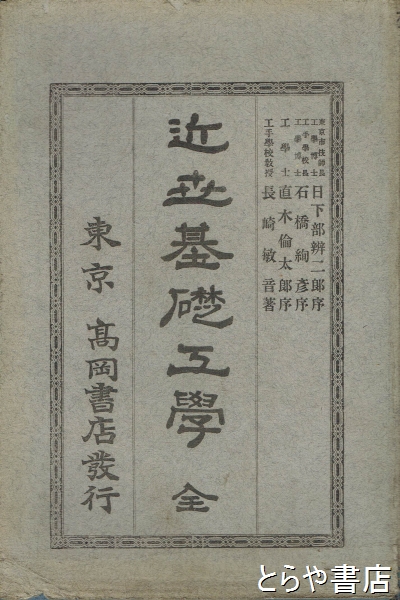 東京市技師長 工學博士 日下部辨二郎序
工手學校長 工學博士 石橋絢彥序
工學士 直木倫太郎序
工手學校教授 長崎敏音著
近世基礎工學 全
東京 髙岡書店發行
とらや書店